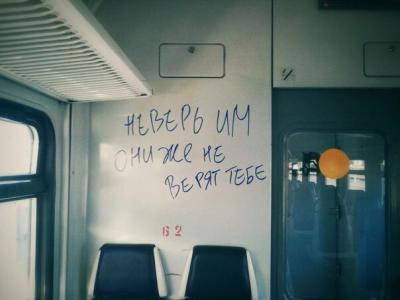 НЕВЕРЬ ИМ
ОНИ ЖЕ НЕ
ВЕРЯТ ТЕБЕ
62